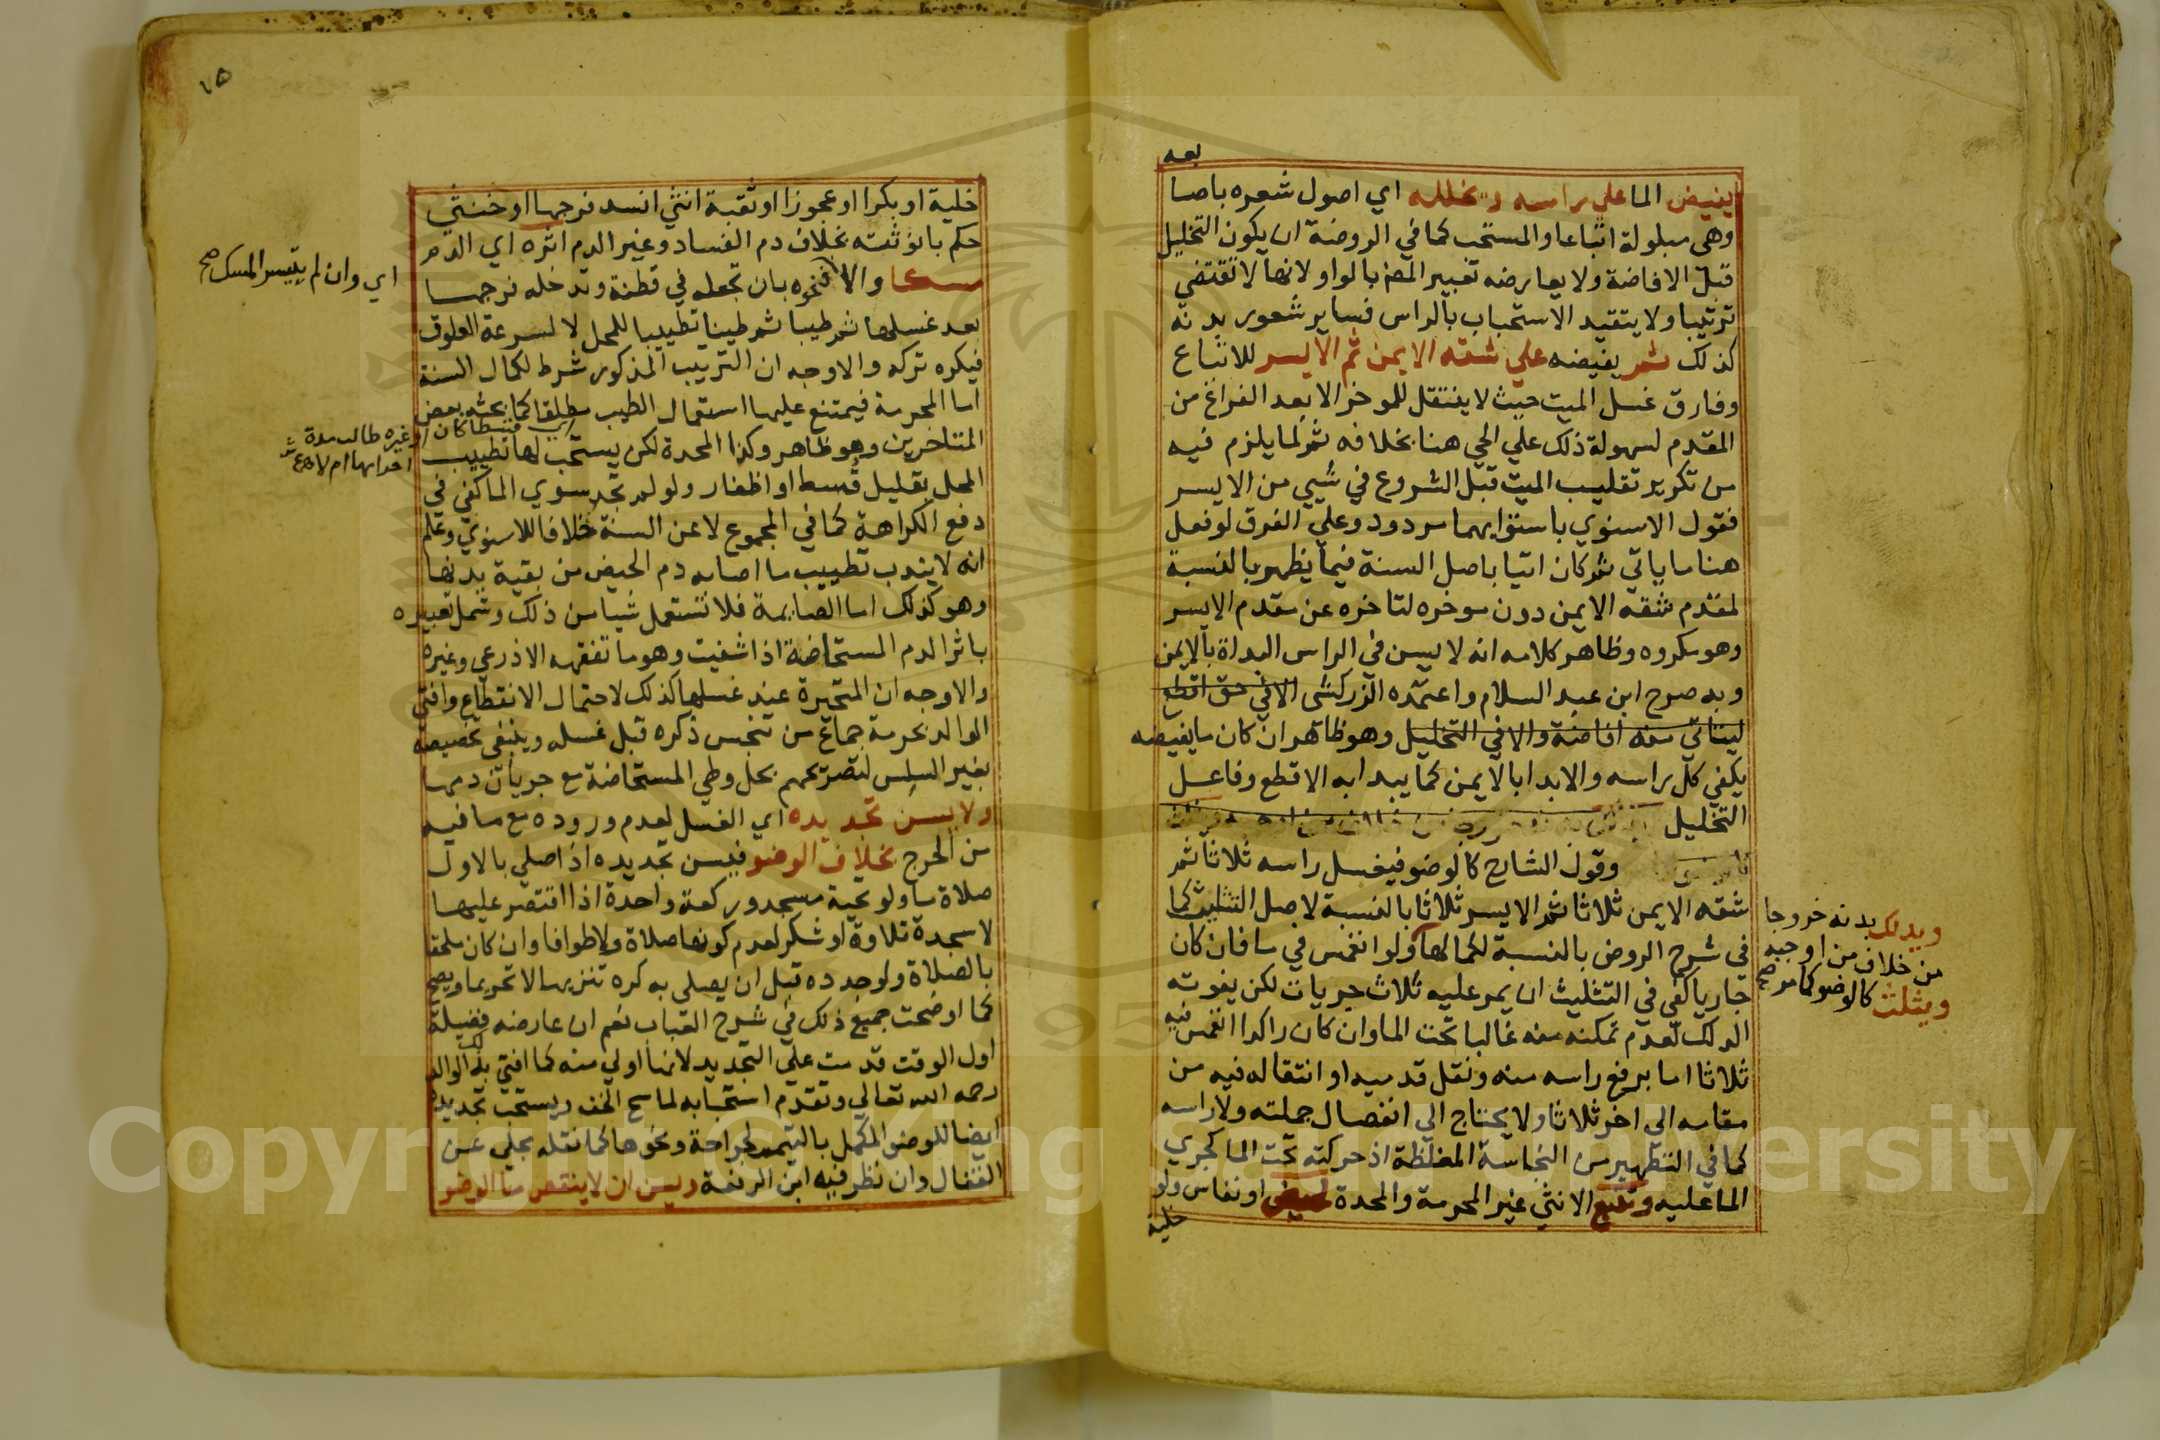 بعه
يفيض الما علي راسه ويخلله اي اصول شعره باصا
وهي مبلولة اتباعا والمستحب كما في الروضة ان يكون التخليل
قبل الافاضة ولا يعارضه تعبير المص بالواو لانها لا تقتضي
ترتيبا ولا يتقيد الاستحباب بالراس فساير شعور بدنه
كذلك ثم يفيضه علي شقه الايمن ثم الايسر للاتباع
وفارق غسل الميت حيث لا ينتقل للموخر الا بعد الفراغ من
المقدم لسهولة ذلك علي الحي هنا بخلافه ثم لما يلزم فيه
من تكرير تقليب الميت قبل الشروع في شيي من الايسر
فقول الاسنوي باستوايهما مردود وعلي الفرق لو فعل
هنا ما ياتي ثم كان اتيا باصل السنة فيما يظهر بالنسبة
لمقدم شقه الايمن دون موخره لتاخره عن مقدم الايسر
وهو مكروه وظاهر كلامه انه لا يسن في الراس البداة بالايمن
وبه صرح ابن عبد السلام واعتمده الزركشى الا في حق اقطع
ليتاتي منه افاضة والا في التخليل وهو ظاهر ان كان ما يفيضه
يكفي كل راسه والا بدا بالايمن كما يبدا به الاقطع وفاعل
التخليل
وقول الشارح كالوضو فيغسل راسه ثلاثا ثم
شقه الايمن ثلاثا ثم الايسر ثلاثا بالنسبة لاصل التثليث كما
في شرح الروض بالنسبة لكمالها ولو انغمس في ما فان كان
جاريا كفي في التثليث ان يمر عليه ثلاث جريات لكن يفوته
الدلك لعدم تمكنه منه غالبا تحت الما وان كان راكدا انغمس فيه
ثلاثا اما برفع راسه منه ونقل قدميه او انتقاله فيه من
مقامه الى اخر ثلاثا ولا يحتاج الي انفصال جملته ولا راسه
كما في التطهير من النجاسة المغلظة اذ حركته تحت الما كجري
الما عليه وتتبع الانثي غير المحرمة والمحدة لحيض او نفاس ولو
خلية
ويدلك بدنه خروجا
من خلاف من اوجبه
ويثلث كالوضو كما مر صح
١٥
خلية او بكرا او عجوزا او ثقبة انثي انسد فرجها او خنثي
حكم بانوثته بخلاف دم الفساد وغير الدم اثره اي الدم
مسكا والا فنحوه بان تجعله في قطنة وتدخله فرجها
بعد غسلها ثم طيبا ثم طينا تطييبا للمحل لا لسرعة العلوق
فيكره تركه والاوجه ان الترتيب المذكور شرط لكمال السنة
اما المحرمة فيمتنع عليها استعمال الطيب مطلقا كما بحثه بعض
المتاخرين وهو ظاهر وكذا المحدة لكن يستحب لها تطييب
المحل بقليل قسط او اظفار ولو لم تجد سوي الما كفي في
دفع الكراهة كما في المجموع لا عن السنة خلافا للاسنوي وعلم
انه لا يندب تطييب ما اصابه دم الحيض من بقية بدنها
وهو كذلك اما الصايمة فلا تستعمل شيا من ذلك وشمل تعبيره
باثر الدم المستحاضة اذا شفيت وهو ما تفقهه الاذرعي وغيره
والاوجه ان المتحيرة عند غسلها كذلك لاحتمال الانقطاع وافتي
الوالد بحرمة جماع من تنجس ذكره قبل غسله وينبغي تخصيصه
بغير السلس لتصريحهم بحل وطي المستحاضة مع جريان دمها
ولا يسن تجديده اي الغسل لعدم وروده مع ما فيه
من الحرج بخلاف الوضو فيسن تجديده اذا صلي بالاول
صلاة ما ولو تحية مسجد وركعة واحدة اذا اقتصر عليها
لا سجدة تلاوة او شكر لعدم كونها صلاة ولا طوافا وان كان ملحقا
بالصلاة ولو جدده قبل ان يصلي به كره تنزيها لا تحريما ويصح
كما اوضحت جميع ذلك في شرح العباب نعم ان عارضه فضيلة
اول الوقت قدمت علي التجديد لانها اولي منه كما افتي به الوالد
رحمه الله تعالى وتقدم استحبابه لماسح الخف ويستحب تجديده
ايضا للوضو المكمل بالتيمم لجراحة ونحوها كما نقله مجلي عن
القفال وان نظر فيه ابن الرفعة ويسن ان لا ينقص ما الوضو
اي وان لم يتيسر المسك صح
اي قسطا كان او غيره طالت مدة
احدادها ام لا